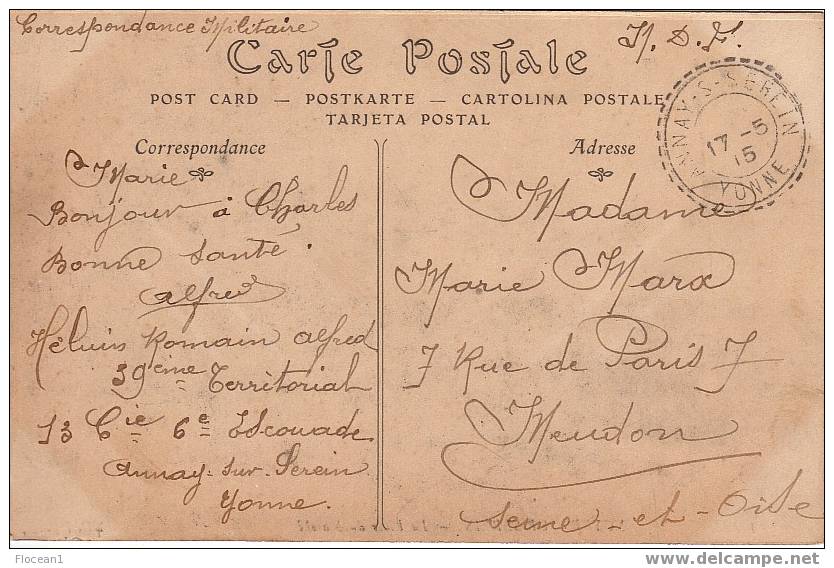 Correspondance Militaire
N. D. F.
Carte Postale
POST CARD — POSTKARTE — CARTOLINA POSTALE
TARJETA POSTAL
ANNAY-S-SEREIN
17-5
15
YONNE
Correspondance
Marie
Bonjour à Charles
Bonne santé.
alfred
Héluin Romain alfred
39ème Territorial
13 Cie 6e Escouade
Annay-sur-Serein
Yonne.
Adresse
Madame
Marie Marx
7 Rue de Paris 7
Meudon
Seine-et-Oise
Flocean1
www.delcampe.net